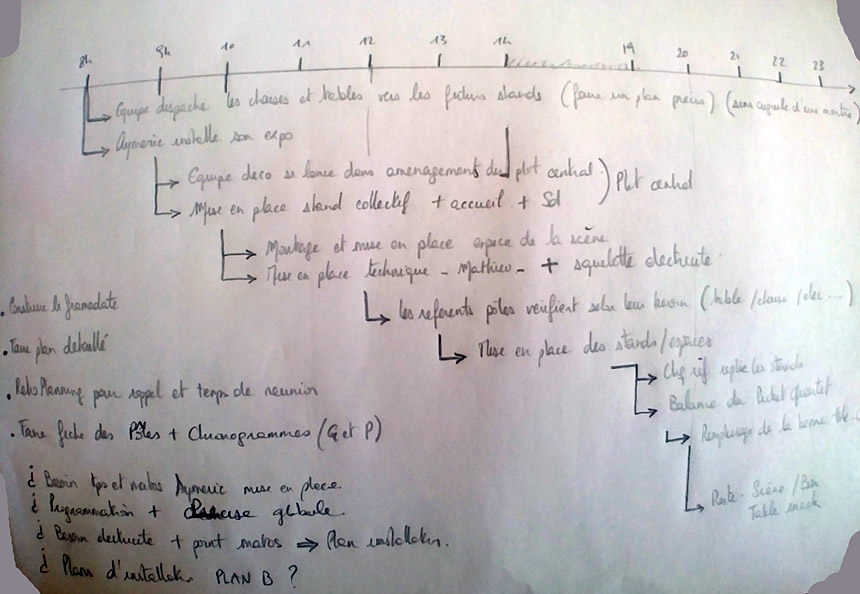 8h 9h 10 11 12 13 14 19 20 21 22 23
Equipe despache les chaises et tables vers les futurs stands (faire un plan précis) (sens aiguille d'une montre)
Aymeric installe son expo
Equipe deco se lance dans amenagements du plot central
Mise en place stand collectif + accueil + Sol
Plot central
Montage et mise en place espace de la scène
Mise en place technique - Mathieu - + squelette electricité
Construire le framadate
les referents pôles verifient selon leur besoin (table/chaise/elec...)
Faire plan detaillé
Mise en place des stands/espaces
Chq réf replie les stands
Retro Planning pour rappel et temps de reunion
Balance du Quartet
Faire fiche des Pôles + Chronogrammes (G et P)
Remplissage de la benne
¿ Besoin tps et matos Aymeric mise en place.
Reste - Scène / Bar
Table snack
¿ Programmation + globale
¿ Besoin electricité + point matos ⇒ Plan installation.
¿ Plans d'installation PLAN B ?